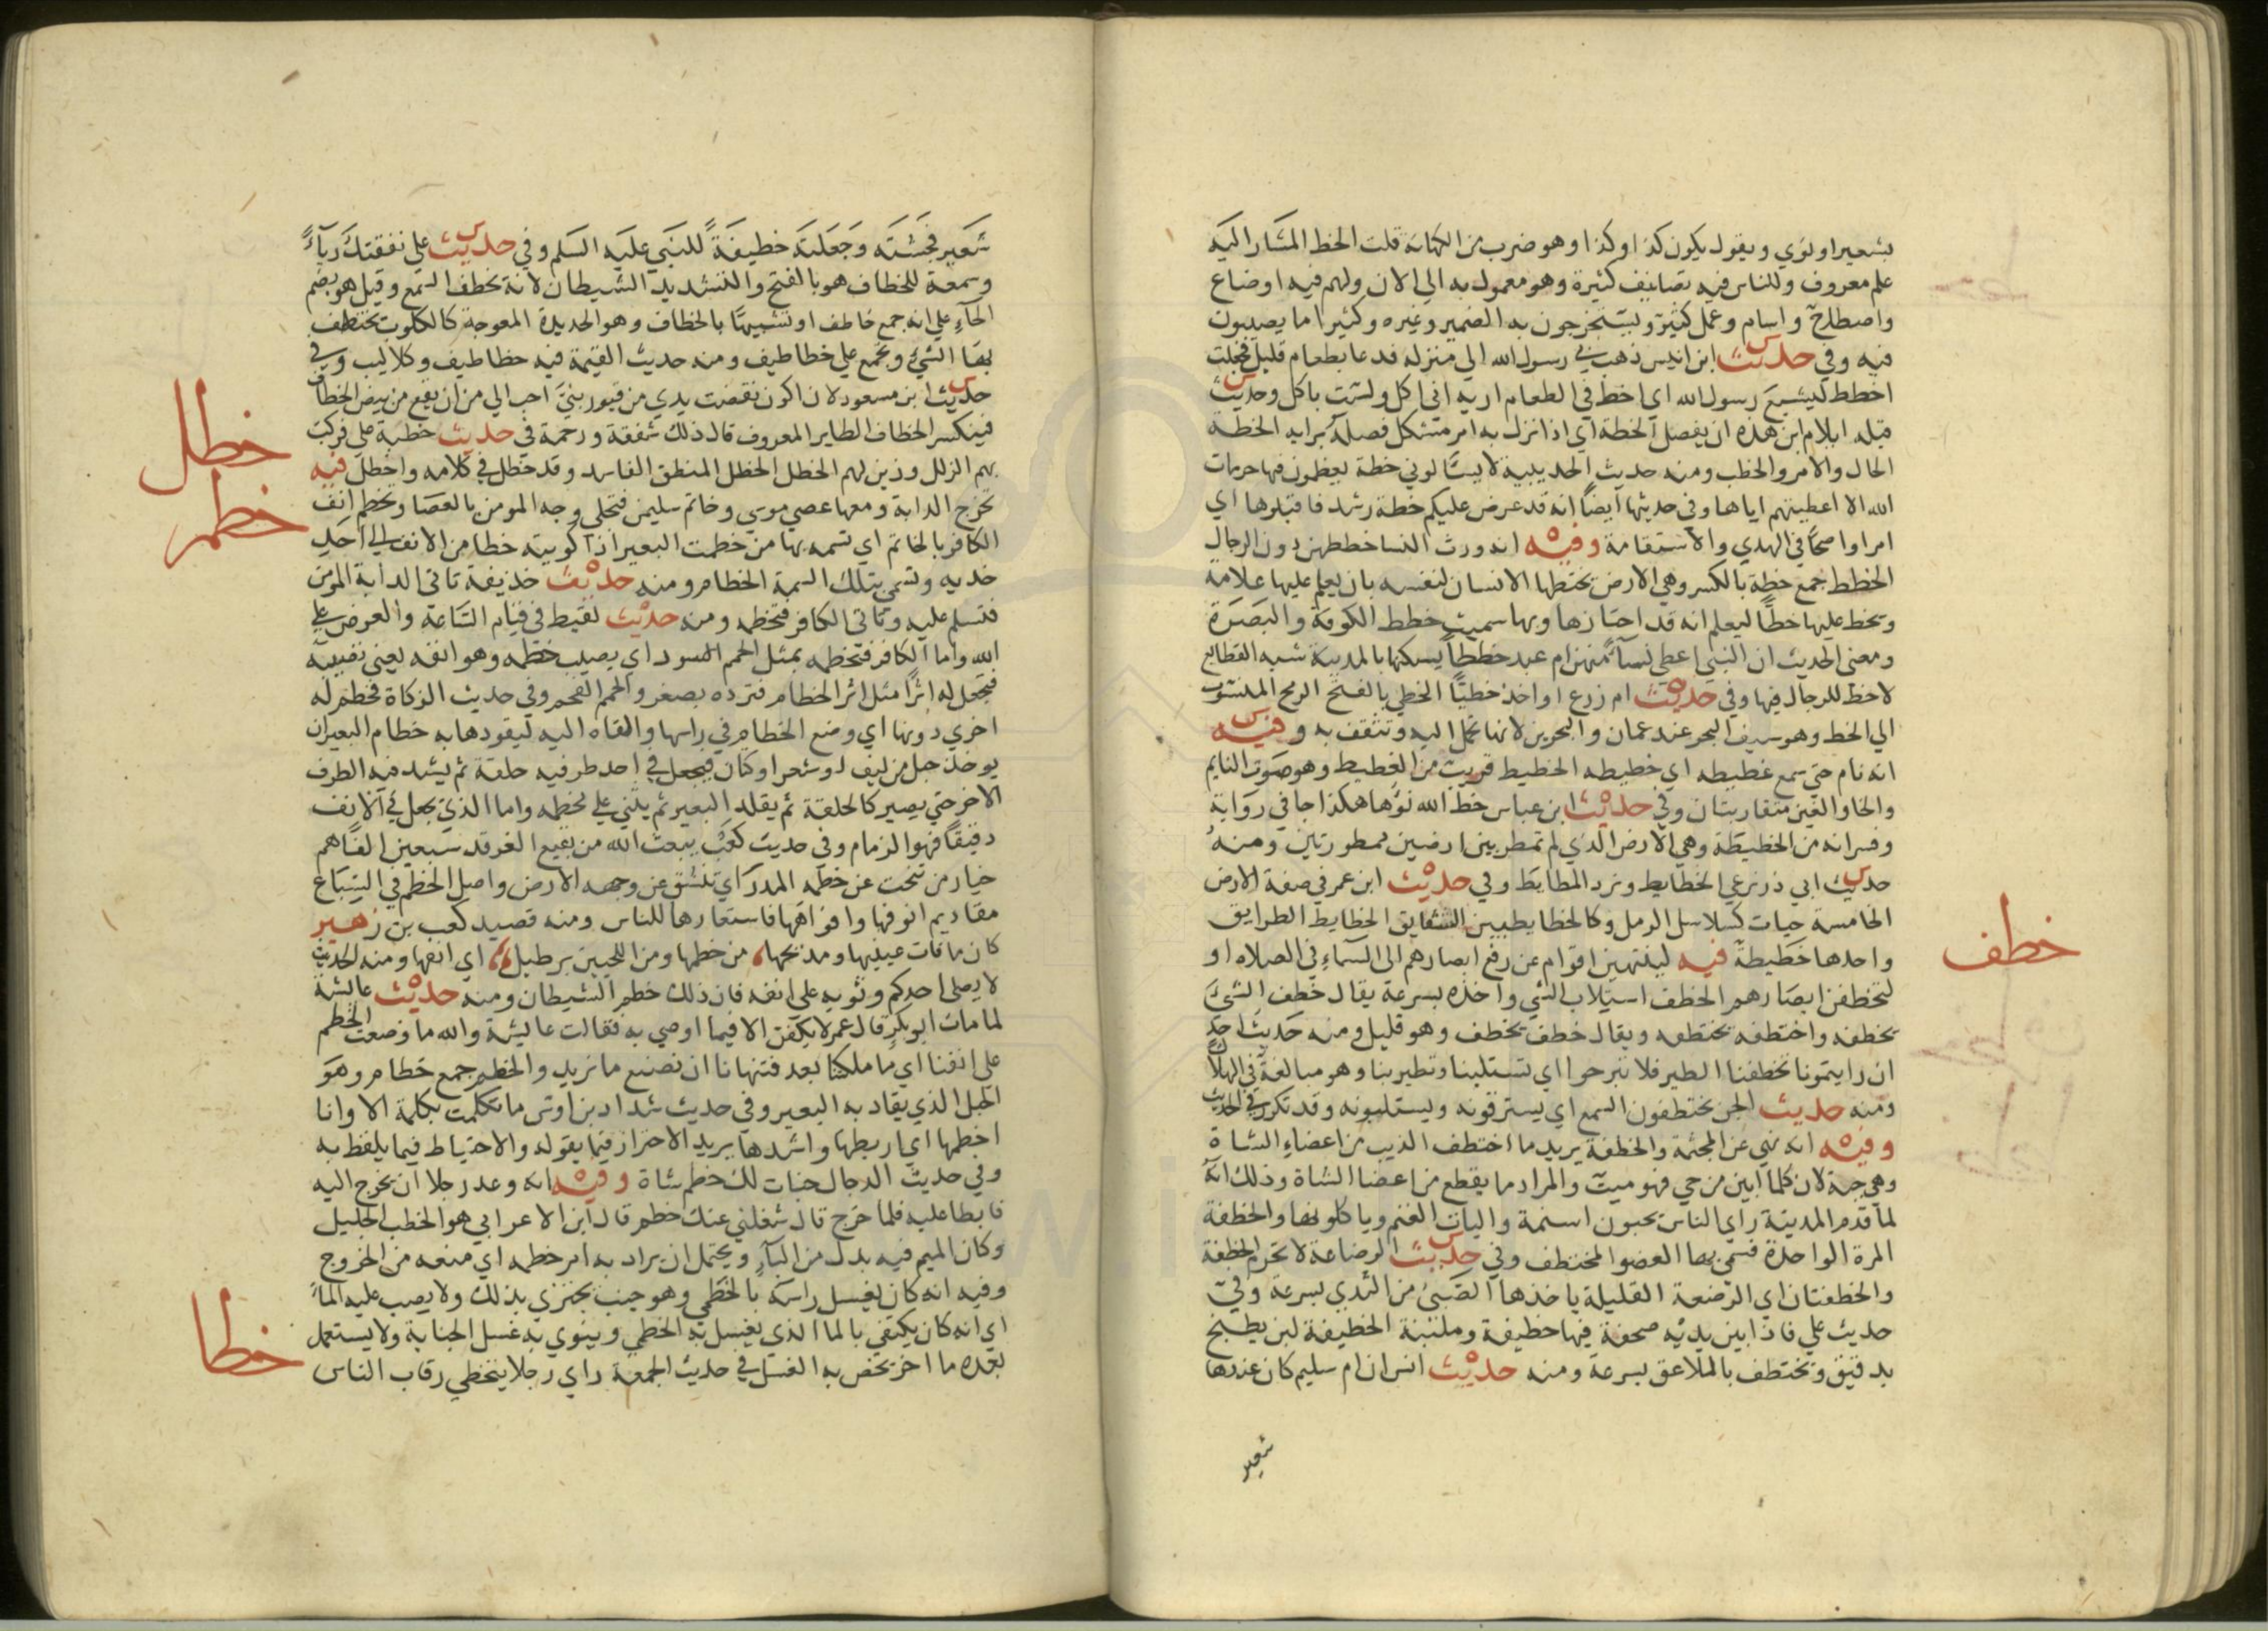 بشعير او نوي ويقول يكون كذا وكذا وهو ضرب من الكهانة قلت الخط المشار اليه
علم معروف وللناس فيه تصانيف كثيرة وهو معمول به الي الان ولهم فيه اوضاع
واصطلاح واسام وعمل كثير ويستخرجون به الضمير وغيره وكثيرا ما يصيبون
فيه وفي حديث ابن انيس ذهب بي رسول الله الي منزله فدعا بطعام قليل فجعلت
اخطط ليشبع رسول الله اي اخط في الطعام اريه اني اكل ولست باكل وحديث
قيله ايلام ابن هذه ان يفصل الخطة اي اذا نزل به امر مشكل فصله برايه الخطة
الحال والامر والخطب ومنه حديث الحديبية لا يسالوني خطة يعظمون فيها حرمات
الله الا اعطيتهم اياها وفي حديثها ايضا انه قد عرض عليكم خطة رشد فاقبلوها اي
امرا واضحا في الهدي والاستقامة وفيه انه ورث النسا خططهن دون الرجال
الخطط جمع خطة بالكسر وهي الارض يختطها الانسان لنفسه بان يعلم عليها علامة
ويخط عليها خطا ليعلم انه قد احتازها وبها سميت خطط الكوفة والبصرة
ومعني الحديث ان النبي اعطي نسآ منهن ام عبد خططا يسكنها بالمدينة شبه القطايع
لاحظ للرجال فيها وفي حديث ام زرع واخذ خطيا الخطي بالفتح الرمح المنسوب
الي الخط وهو سيف البحر عند عمان والبحرين لانها تحمل اليه وتثقف به وفيه
انه نام حتي سمع غطيطه اي خطيطه الخطيط قريب من الغطيط وهو صوت النايم
والخا والغين متقاربتان وفي حديث ابن عباس خط الله نوها هكذا جا في رواية
وفسر انه من الخطيطة وهي الارض الذي لم تمطر بين ارضين ممطورتين ومنه
حديث ابي ذر نرعي الخطايط ونرد المطايط وفي حديث ابن عمر في صفة الارض
الخامسة حيات كسلاسل الرمل وكالخطايط بين الشقايق الخطايط الطرايق
واحدها خطيطة فيه لينتهين اقوام عن رفع ابصارهم الي السماء في الصلاه او
لتخطفن ابصارهم الخطف استلاب الشي واخذه بسرعة يقال خطف الشي
يخطفه واختطفه يختطفه ويقال خطف يخطف وهو قليل ومنه حديث احد
ان رايتمونا تخطفنا الطير فلا تبرحوا اي تستلبنا وتطير بنا وهو مبالغة في الهلاك
ومنه حديث الجن يختطفون السمع اي يسترقونه ويستلبونه وقد تكرر في الحديث
وفيه انه نهي عن المجثمة والخطفة يريد ما اختطف الذيب من اعضاء الشاة
وهي حية لان كلما ابين من حي فهو ميت والمراد ما يقطع من اعضا الشاة وذلك انه
لما قدم المدينة راي الناس يجبون اسنمة واليات الغنم وياكلونها والخطفة
المرة الواحدة فسمي بها العضو المختطف وفي حديث الرضاعة لا تحرم الخطفة
والخطفتان اي الرضعة القليلة ياخذها الصبي من الثدي بسرعة وفي
حديث علي فاذا بين يديه صحفة فيها خطيفة وملبنة الخطيفة لبن يطبخ
بدقيق ويختطف بالملاعق بسرعة ومنه حديث انس ان ام سليم كان عندها
شعير
خطف
شعير فجشته وجعلته خطيفة للنبي عليه السلم وفي حديث علي نفقتك رياء
وسمعة للخطاف هو بالفتح والتشديد الشيطان لانه يخطف السمع وقيل هو بضم
الخاء علي انه جمع خاطف او تشبيها بالخطاف وهو الحديدة المعوجة كالكلوب يختطف
بها الشي ويجمع علي خطاطيف ومنه حديث القيمة فيه خطاطيف وكلاليب وفي
حديث ابن مسعود لان اكون نفضت يدي من قبور بني احب الي من ان يقع من بيض الخطاف
فينكسر الخطاف الطاير المعروف قال ذلك شفقة ورحمة في حديث خطبة علي فركب
بهم الزلل وزين لهم الخطل الخطل المنطق الفاسد وقد خطل في كلامه واخطل فيه
تخرج الدابة ومعها عصي موسي وخاتم سليمن فتحلي وجه المومن بالعصا وتخطم انف
الكافر بالخاتم اي تسمه بها من خطمت البعير اذا كويته خطا من الانف الي احد
خديه وتسمي بتلك السمة الخطام ومنه حديث حذيفة تاتي الدابة المومن
فتسلم عليه وتاتي الكافر فتخطمه ومنه حديث لقيط في قيام الساعة والعرض علي
الله واما الكافر فتخطمه بمثل الحمم الاسود اي يصيب خطمه وهو انفه يعني تصيبه
فتجعل له اثرا مثل اثر الخطام فترده بصغر والحمم الفحم وفي حديث الزكاة فخطم له
اخري دونها اي وضع الخطام في راسها والقاه اليه ليقودها به خطام البعير ان
يوخذ حبل من ليف او شعر او كتان فيجعل في احد طرفيه حلقة ثم يشد فيه الطرف
الاخر حتي يصير كالحلقة ثم يقلد البعير ثم يثني علي مخطمه واما الذي يجعل في الانف
دقيقا فهو الزمام وفي حديث كعب يبعث الله من بقيع الغرقد سبعين الفا هم
خيار من تنحت عن خطمه المدر اي تنشق عن وجهه الارض واصل الخطم في السباع
مقاديم انوفها وافواهها فاستعارها للناس ومنه قصيد كعب بن زهير
كان ما فات عينيها ومذبحها من خطمها ومن اللحيين برطيل اي انفها ومنه الحديث
لا يصلي احدكم وثوبه علي انفه فان ذلك خطم الشيطان ومنه حديث عايشة
لما مات ابو بكر قال عمر لا يكفن الا فيما اوصي به فقالت عايشة والله ما وضعت الخطم
علي انفنا اي ما ملكتنا بعد فتنهانا ان نصنع ما نريد والخطم جمع خطام وهو
الحبل الذي يقاد به البعير وفي حديث شداد بن اوس ما تكلمت بكلمة الا وانا
اخطمها اي اربطها واشدها يريد الاحتراز فيما يقوله والاحتياط فيما يلفظ به
وفي حديث الدجال خبات لك خطم شاة وفيه انه وعد رجلا ان يخرج اليه
فابطا عليه فلما خرج قال شغلني عنك خطم قال ابن الاعرابي هو الخطب الجليل
وكان الميم فيه بدل من البآء ويحتمل ان يراد به امر خطمه اي منعه من الخروج
وفيه انه كان يغسل راسه بالخطمي وهو جنب يجتزي بذلك ولا يصب عليه الماء
اي انه كان يكتفي بالما الذي يغسل به الخطمي وينوي به غسل الجنابة ولا يستعمل
بعده ما اخر يخص به الغسل في حديث الجمعة راي رجلا يتخطي رقاب الناس
خطل
خطم
خطا